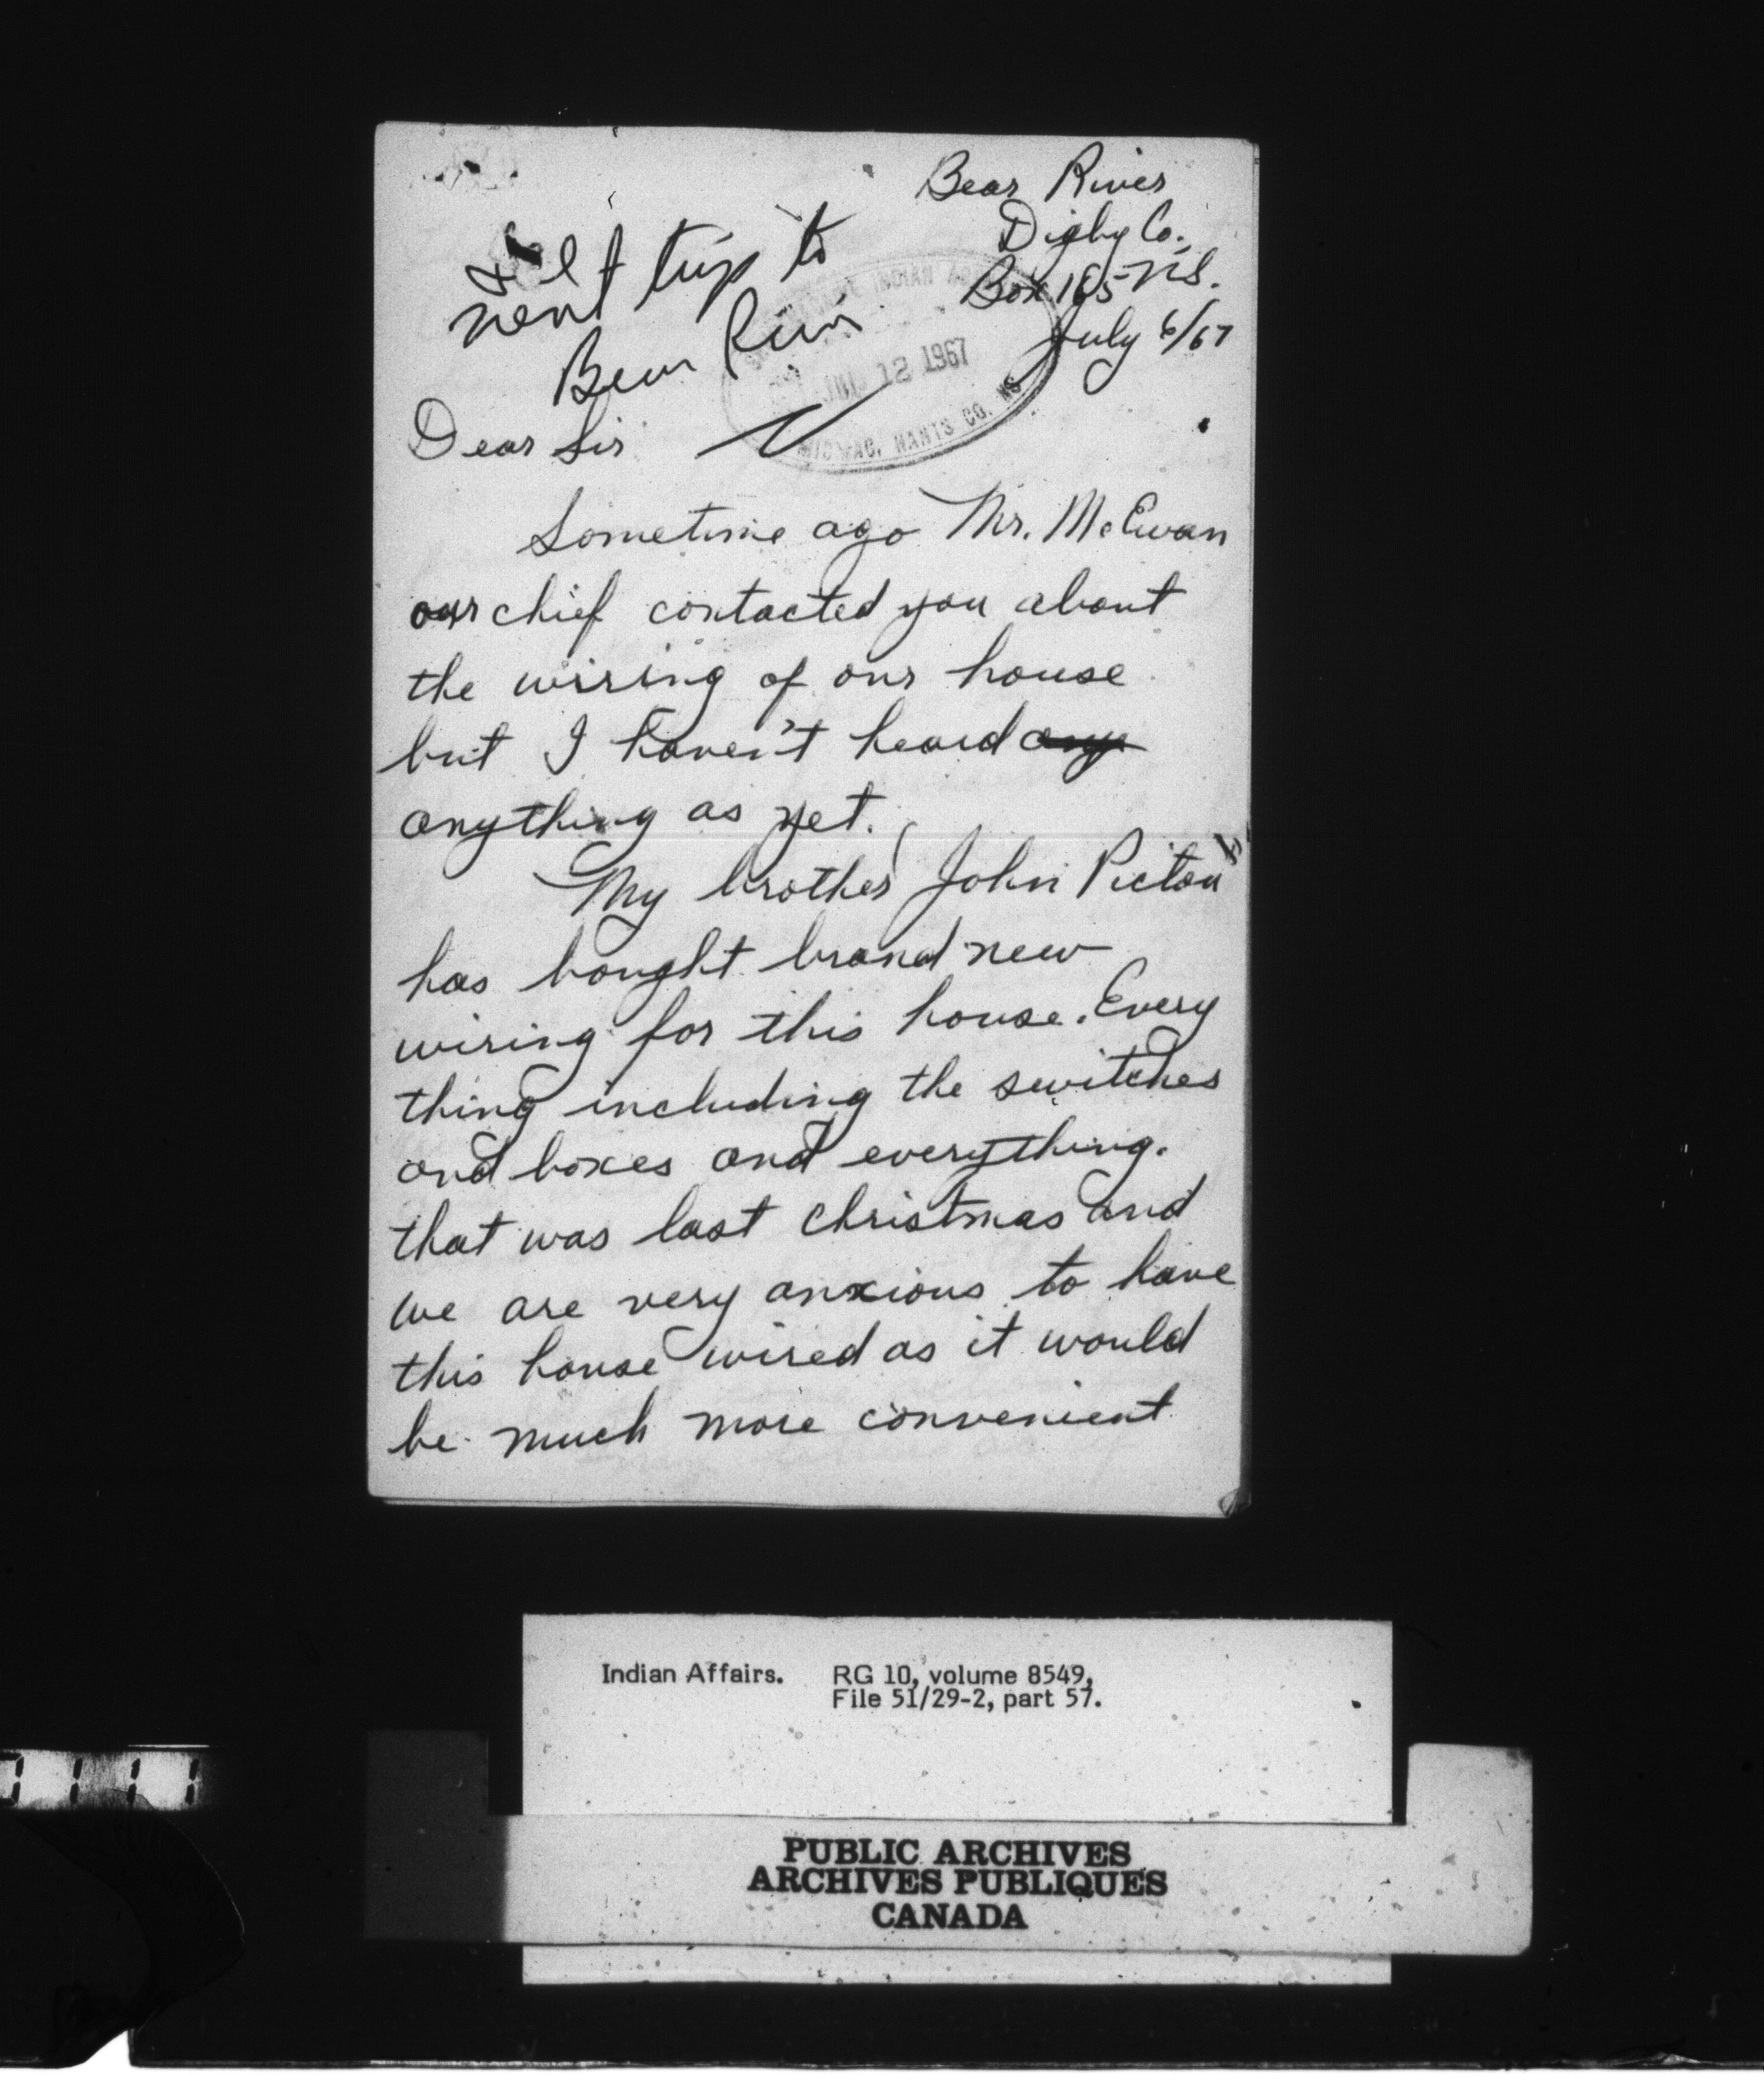 Bear River
Digby Co.,
Box 165 N.S.
July 6/67
next trip to
Bear River
INDIAN
12 1967
MICMAC, HANTS CO. NS
Dear Sir
Sometime ago Mr. McEwan
our chief contacted you about
the wiring of our house
but I haven't heard any
anything as yet.
My brother John Pictou
has bought brand new
wiring for this house. Every
thing including the switches
and boxes and everything.
that was last christmas and
we are very anxious to have
this house wired as it would
be much more convenient
Indian Affairs. RG 10, volume 8549,
File 51/29-2, part 57.
PUBLIC ARCHIVES
ARCHIVES PUBLIQUES
CANADA